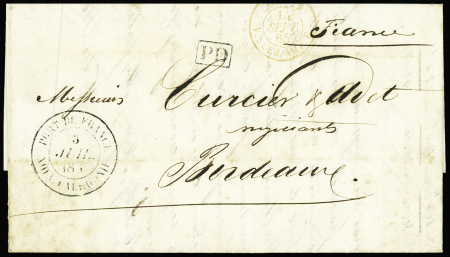 France
PD
Messieurs
Curcier & Adet
négociants
Bordeaux
PORT DE FRANCE
5
JUIL.
NOUV. CALÉDONIE